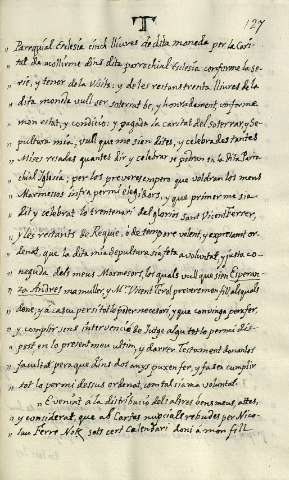 T 127
" Parroquial Esglesia cinch lliures de dita moneda per la Cari-
" tat de mollirme dins dita parrochial Esglesia conforme la se-
" rie, y tenor de la Visita: y de les restans trenta lliures de la
" dita moneda vull ser soterrat be, y honradament, conforme
" mon estat, y condició: y pagada la caritat del soterrar, y Se-
" pultura mia, vull que me sien dites, y celebrades tantes
" Mises resades quantes dir y celebrar se podran en la Dita Parro-
" chial Iglesia; per los preveres empero que voldran los meus
" Marmesors infra per mi elegidors, y que primer me sia
" dit y celebrat lo trentenari del glorios sant Vicent Ferrer,
" y les restants de Requie, o de tempore volent, y expressament or-
" denat que la dita mia sepultura sia feta a voluntat, y justa co-
" neguda dels meus Marmesors, los quals vull que sien Esperan-
" za Andres ma muller, y Mn Vicent prevere mon fill als quals
" dont, y a casu per si tot lo poster necesari, y que convinga per a fer,
" y cumplir sens intervencio de Jutge algu tot lo per mi dis-
" post en lo present meu ultim, y darrer Testament donanlos
" facultad pera que dins dos anys puixen fer, y fasen cumplir
" tot lo per mi desus ordenat, com tal sia ma voluntat.
" E venint a la distribució dels altres bens meus, attes,
" y considerat, que ab Cartas nupcials rebudes per Nico-
" lau Ferre Not. sots cert Calendari doni a mon fill